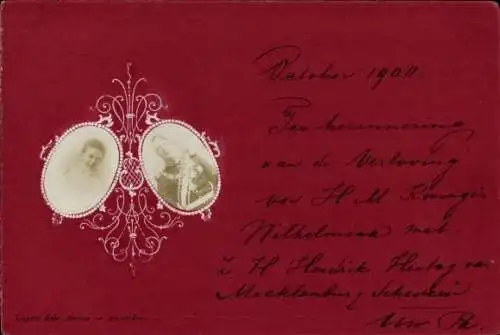 October 1900
Ter herinnering
aan de Verloving
van H M Koningin
Wilhelmina met
Z H Hendrik Hertog van
Mecklenburg Schwerin